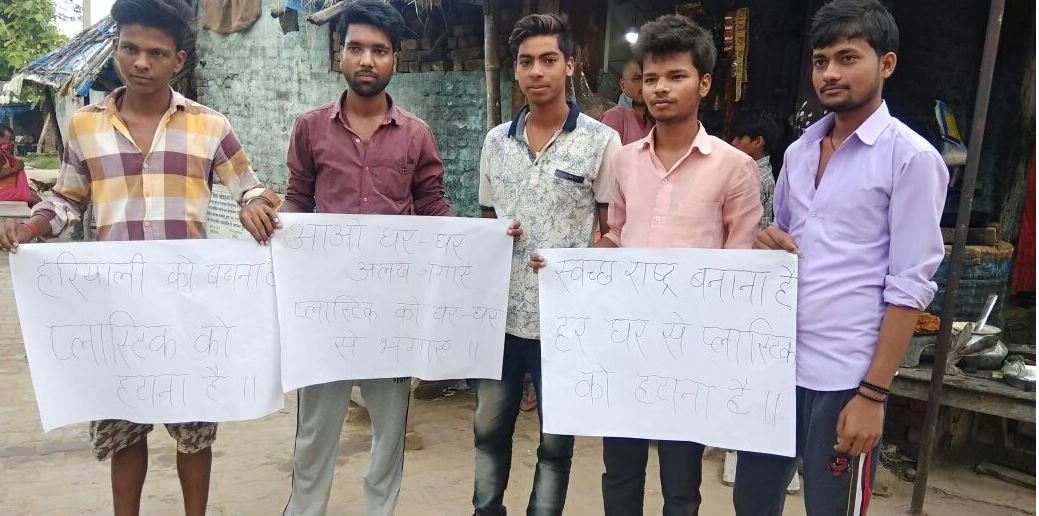 हरियाली को बढाना है
प्लास्टिक को
हटाना है ॥
आओ घर-घर
अलख जगाए
प्लास्टिक को घर-घर
से भगाए ॥
स्वच्छ राष्ट्र बनाना है
हर घर से प्लास्टिक
को हटाना है ॥